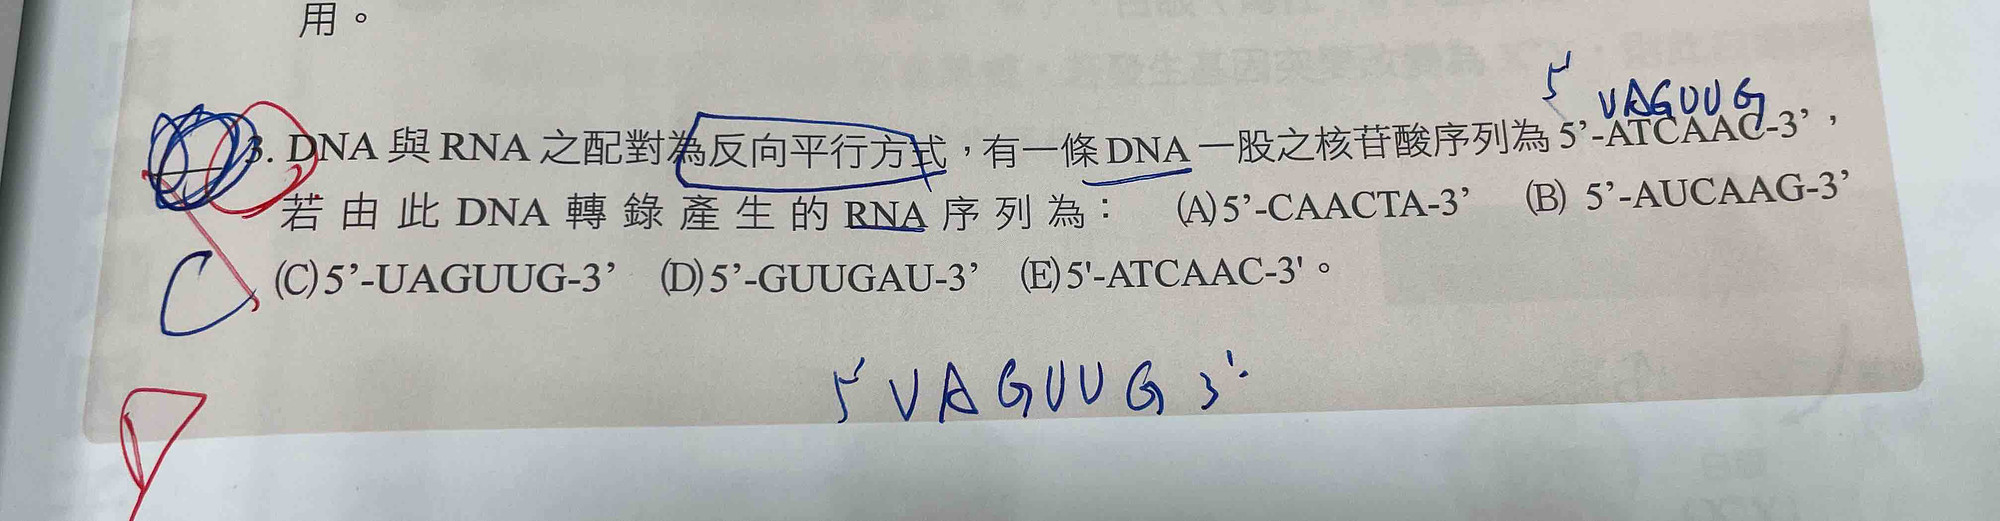 用。
5' UAGUUG
3. DNA 與 RNA 之配對為反向平行方式，有一條 DNA 一股之核苷酸序列為 5’-ATCAAC-3’，
若由此 DNA 轉錄產生的 RNA 序列為： (A)5’-CAACTA-3’ (B) 5’-AUCAAG-3’
(C)5’-UAGUUG-3’ (D)5’-GUUGAU-3’ (E)5'-ATCAAC-3'。
C
5' UAGUUG 3'